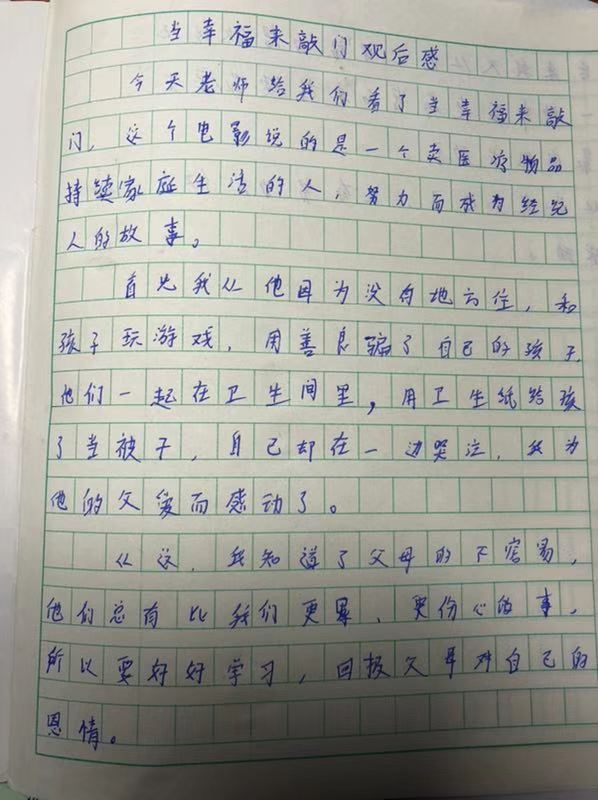 当幸福来敲门观后感
今天老师给我们看了当幸福来敲
门，这个电影说的是一个卖医疗物品
持续家庭生活的人，努力而成为经纪
人的故事。
首先我从他因为没有地方住，和
孩子玩游戏，用善良骗了自己的孩子，
他们一起在卫生间里，用卫生纸给孩
子当被子，自己却在一边哭泣，我为
他的父爱而感动了。
从这，我知道了父母的不容易，
他们总有比我们更累，更伤心的事，
所以要好好学习，回报父母对自己的
恩情。